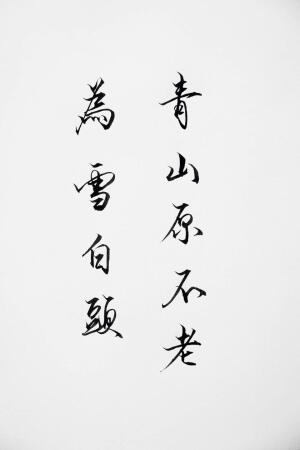 青山原不老
為雪白頭